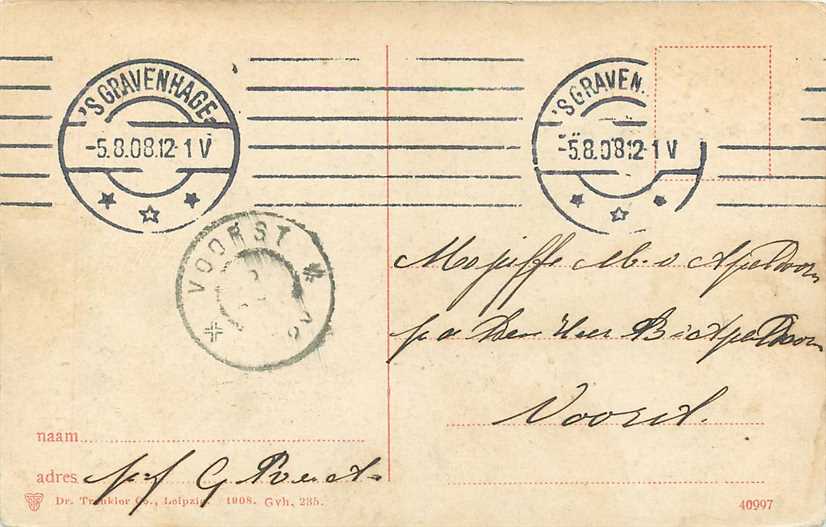 'S GRAVENHAGE
-5.8.08.12-1 V
'S GRAVEN
-5.8.08.12-1 V
VOORST
M. v Apeldoorn
p a Den Heer B v Apeldoorn
Voorst.
naam
adres
Dr. Trenkler Co., Leipzig. 1908. Gvh. 235.
40997